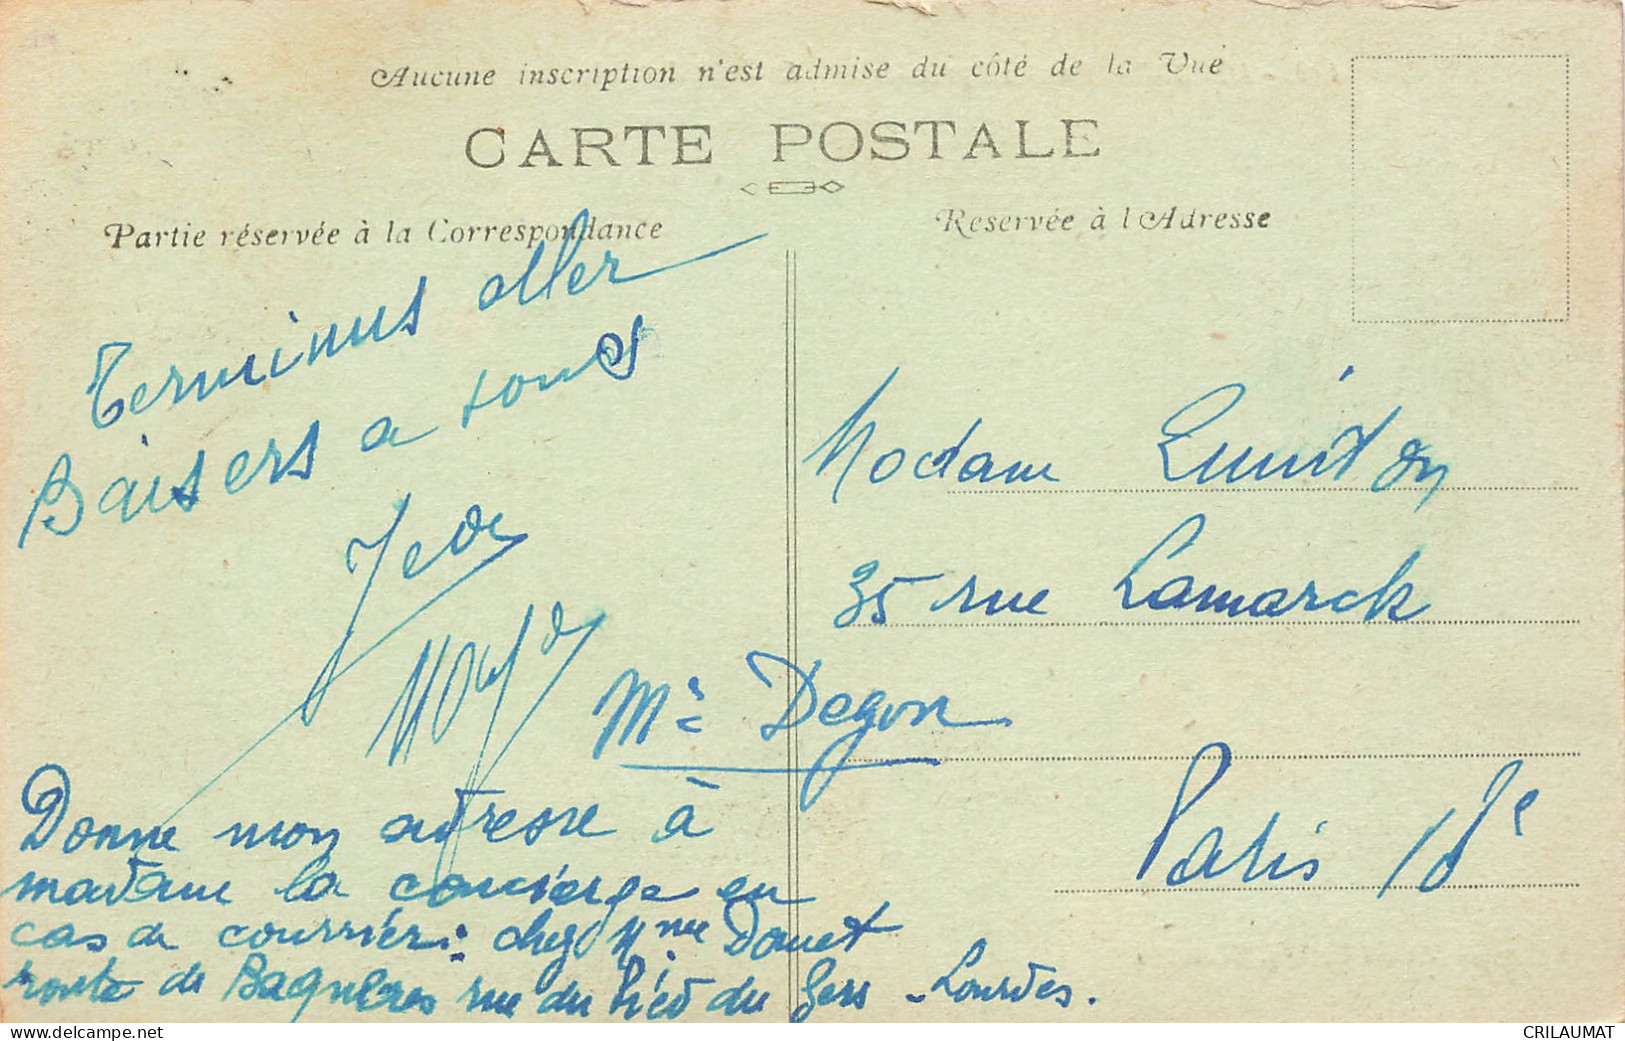 Aucune inscription n'est admise du côté de la Vue
CARTE POSTALE
Partie réservée à la Correspondance
Reservée à l'Adresse
Terminus aller
Baisers a tous
Donne mon adresse à
madame la concierge en
cas de courrier : chez Mme Douet
route de Bagnères rue du Pied du Gers - Lourdes.
Madame
35 rue Lamarck
Mc Degon
Paris 18e
CRILAUMAT